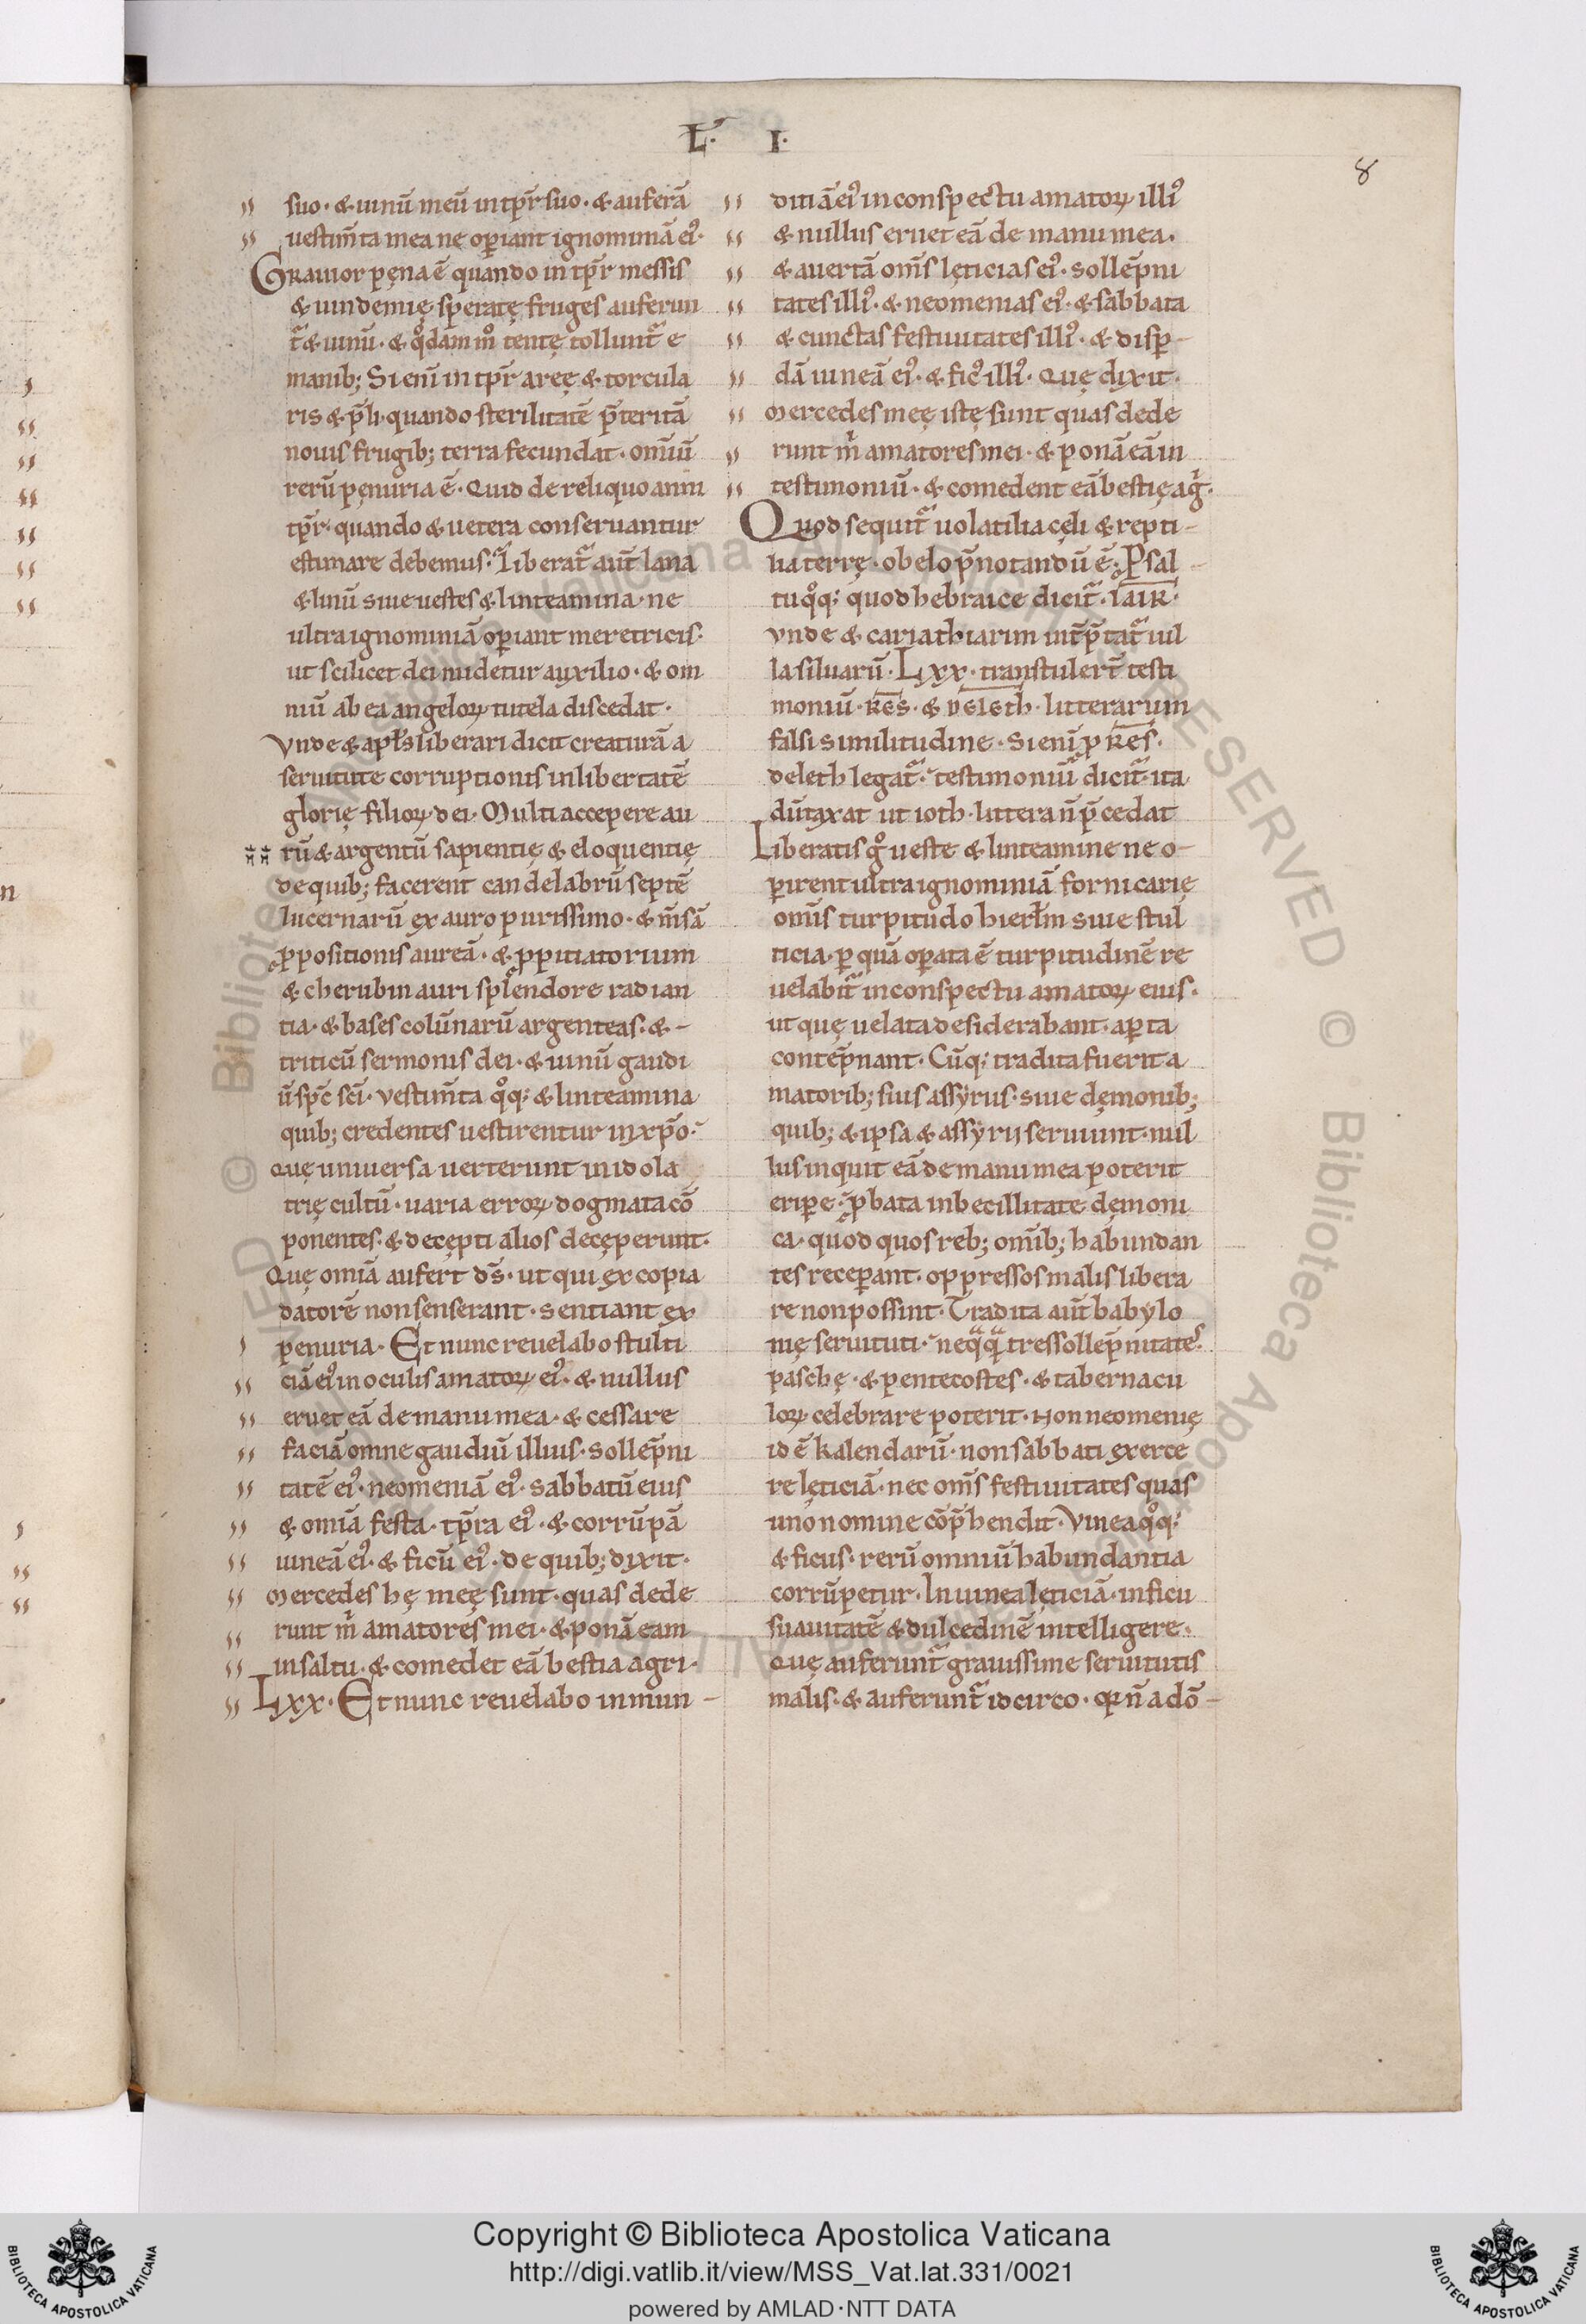 L. I.
8
suo · & uinū meū in tp̄r suo · & auferā
uestim̄ta mea ne op̄iant ignominiā ei᷒·
Grauior pęna ē quando in tp̄r messis
& uindemię speratę fruges auferun
t᷑ & uinū · & q͛dam m͛ tentę tollunt᷑ e
manib; Si eni in tp̄r areę & torcula
ris & p̄li · quando sterilitatē p̄teritā
nouis frugib; terra fecundat · omīū
rerū pęnuria ē · Quid de reliquo anni
tp̄r · quando & uetera conseruantur
estimare debemus · Liberat᷑ aut̄ lana
& linū siue uestes & linteamina · ne
ultra ignominiā op̄iant meretricis·
ut scilicet dei nudetur auxilio · & om
niū ab ea angeloꝝ tutela discedat·
Vnde & apłs liberari dicit creaturā a
seruitute corruptionis in libertatē
glorię filioꝝ dei · Multi accepere au
rū & argentū sapientię & eloquentię
de quib; facerent candelabrū septē
lucernarū ex auro purissimo · & m̄sā
ꝓpositionis aureā · & ꝓpitiatorium
& cherubin auri splendore radian
tia · & bases colūnarū argenteas · & -
triticū sermonis dei · & uinū gaudi
ū sp̄c sc̄i · vestim̄ta q͛q; & linteamina
quib; credentes uestirentur in xp̄o·
Quę uniuersa uerterunt in idola
trię cultū · uaria erroꝝ dogmata cō
ponentes · & decępti alios decęperunt·
Quę omīa aufert d̄s · ut qui ex copia
datorē non senserant · sentiant ex
penuria · Et nunc reuelabo stulti
ciā ei᷒ in oculis amatoꝝ ei᷒ · & nullus
eruet eā de manu mea · & cessare
faciā omne gaudiū illius · sollēpni
tatē ei᷒ · neomeniā ei᷒ · sabbatū eius
& omīa festa · tp̄ra ei᷒ · & corrūpā
uineā ei᷒ · & ficū ei᷒ · de quib; dixit·
Mercedes hę meę sunt · quas dede
runt m̄ amatores mei · & ponā eam
in saltu · & comedet eā bestia agri·
Lxx · Et nunc reuelabo inmun -
ditiā ei᷒ in conspectu amatoꝝ illi᷒
& nullus eruet eā de manu mea·
& auertā om̄s lęticias ei᷒ · sollēpni
tates illi᷒ · & neomenias ei᷒ · & sabbata
& cunctas festiuitates illi᷒ · & disp̄ -
dā uineā ei᷒ · & fic᷒ illi᷒ · Quę dixit·
Mercedes meę istę sunt quas dede
runt m̄ amatores mei · & ponā eā in
testimoniū · & comedent eā bestię ag̃·
Quod sequit᷑ uolatilia cęli & repti -
lia terrę · obelo p̄notandū ē · Psal -
tu q͛q; quod hebraice dicit᷑ · IAIR·
vnde & cariathiarim int̄p̄tat᷑ uil
la siluarū · Lxx · transtuler̄t testi
moniū · RES · & DELETH · litterarum
falsi similitudine · Si enī ꝓ RES·
deleth legat᷑ · testimoniū dicit᷑ · ita
dūtaxat ut ioth · littera n̄ p̄cedat
Liberatis g͛ ueste & linteamine ne o -
perirent ultra ignominiā fornicarię
omīs turpitudo hierłm siue stul
ticia · p̱ quā op̱ata ē turpitudinē re
uelabit᷑ in conspectu amatoꝝ eius·
ut quę uelata desiderabant · ap̱ta
contēpnant · Cūq; tradita fuerit a
matorib; suis assyrus · siue dęmonib;
quib; & ipsa & assyrij seruiunt · nul
lus inquit eā de manu mea poterit
erip̱e · ꝓbata inbecillitate dęmoni
ca · quod quos reb; omīb; habundan
tes recep̱ant · oppressos malis libera
re non possint · Tradita aut̄ babylo
nię seruituti · neq̄q̄ tres sollēpnitates·
paschę · & pentecostes · & tabernacu
loꝝ celebrare poterit · Non neomenię
id ē kalendarū · non sabbati exerce
re lęticiā · nec om̄s festiuitates quas
uno nomine cōp̄hendit · Vinea q͛q;
& ficus · rerū omniū habundantia
corrūpetur · In uinea lęticiā · in ficu
suauitatē & dulcedinē intelligere·
Quę auferunt᷑ grauissime seruitutis
malis · & auferunt᷑ idcirco · qꝛ n̄ a dō -
Copyright © Biblioteca Apostolica Vaticana
http://digi.vatlib.it/view/MSS_Vat.lat.331/0021
powered by AMLAD·NTT DATA
BIBLIOTECA APOSTOLICA VATICANA
BIBLIOTECA APOSTOLICA VATICANA